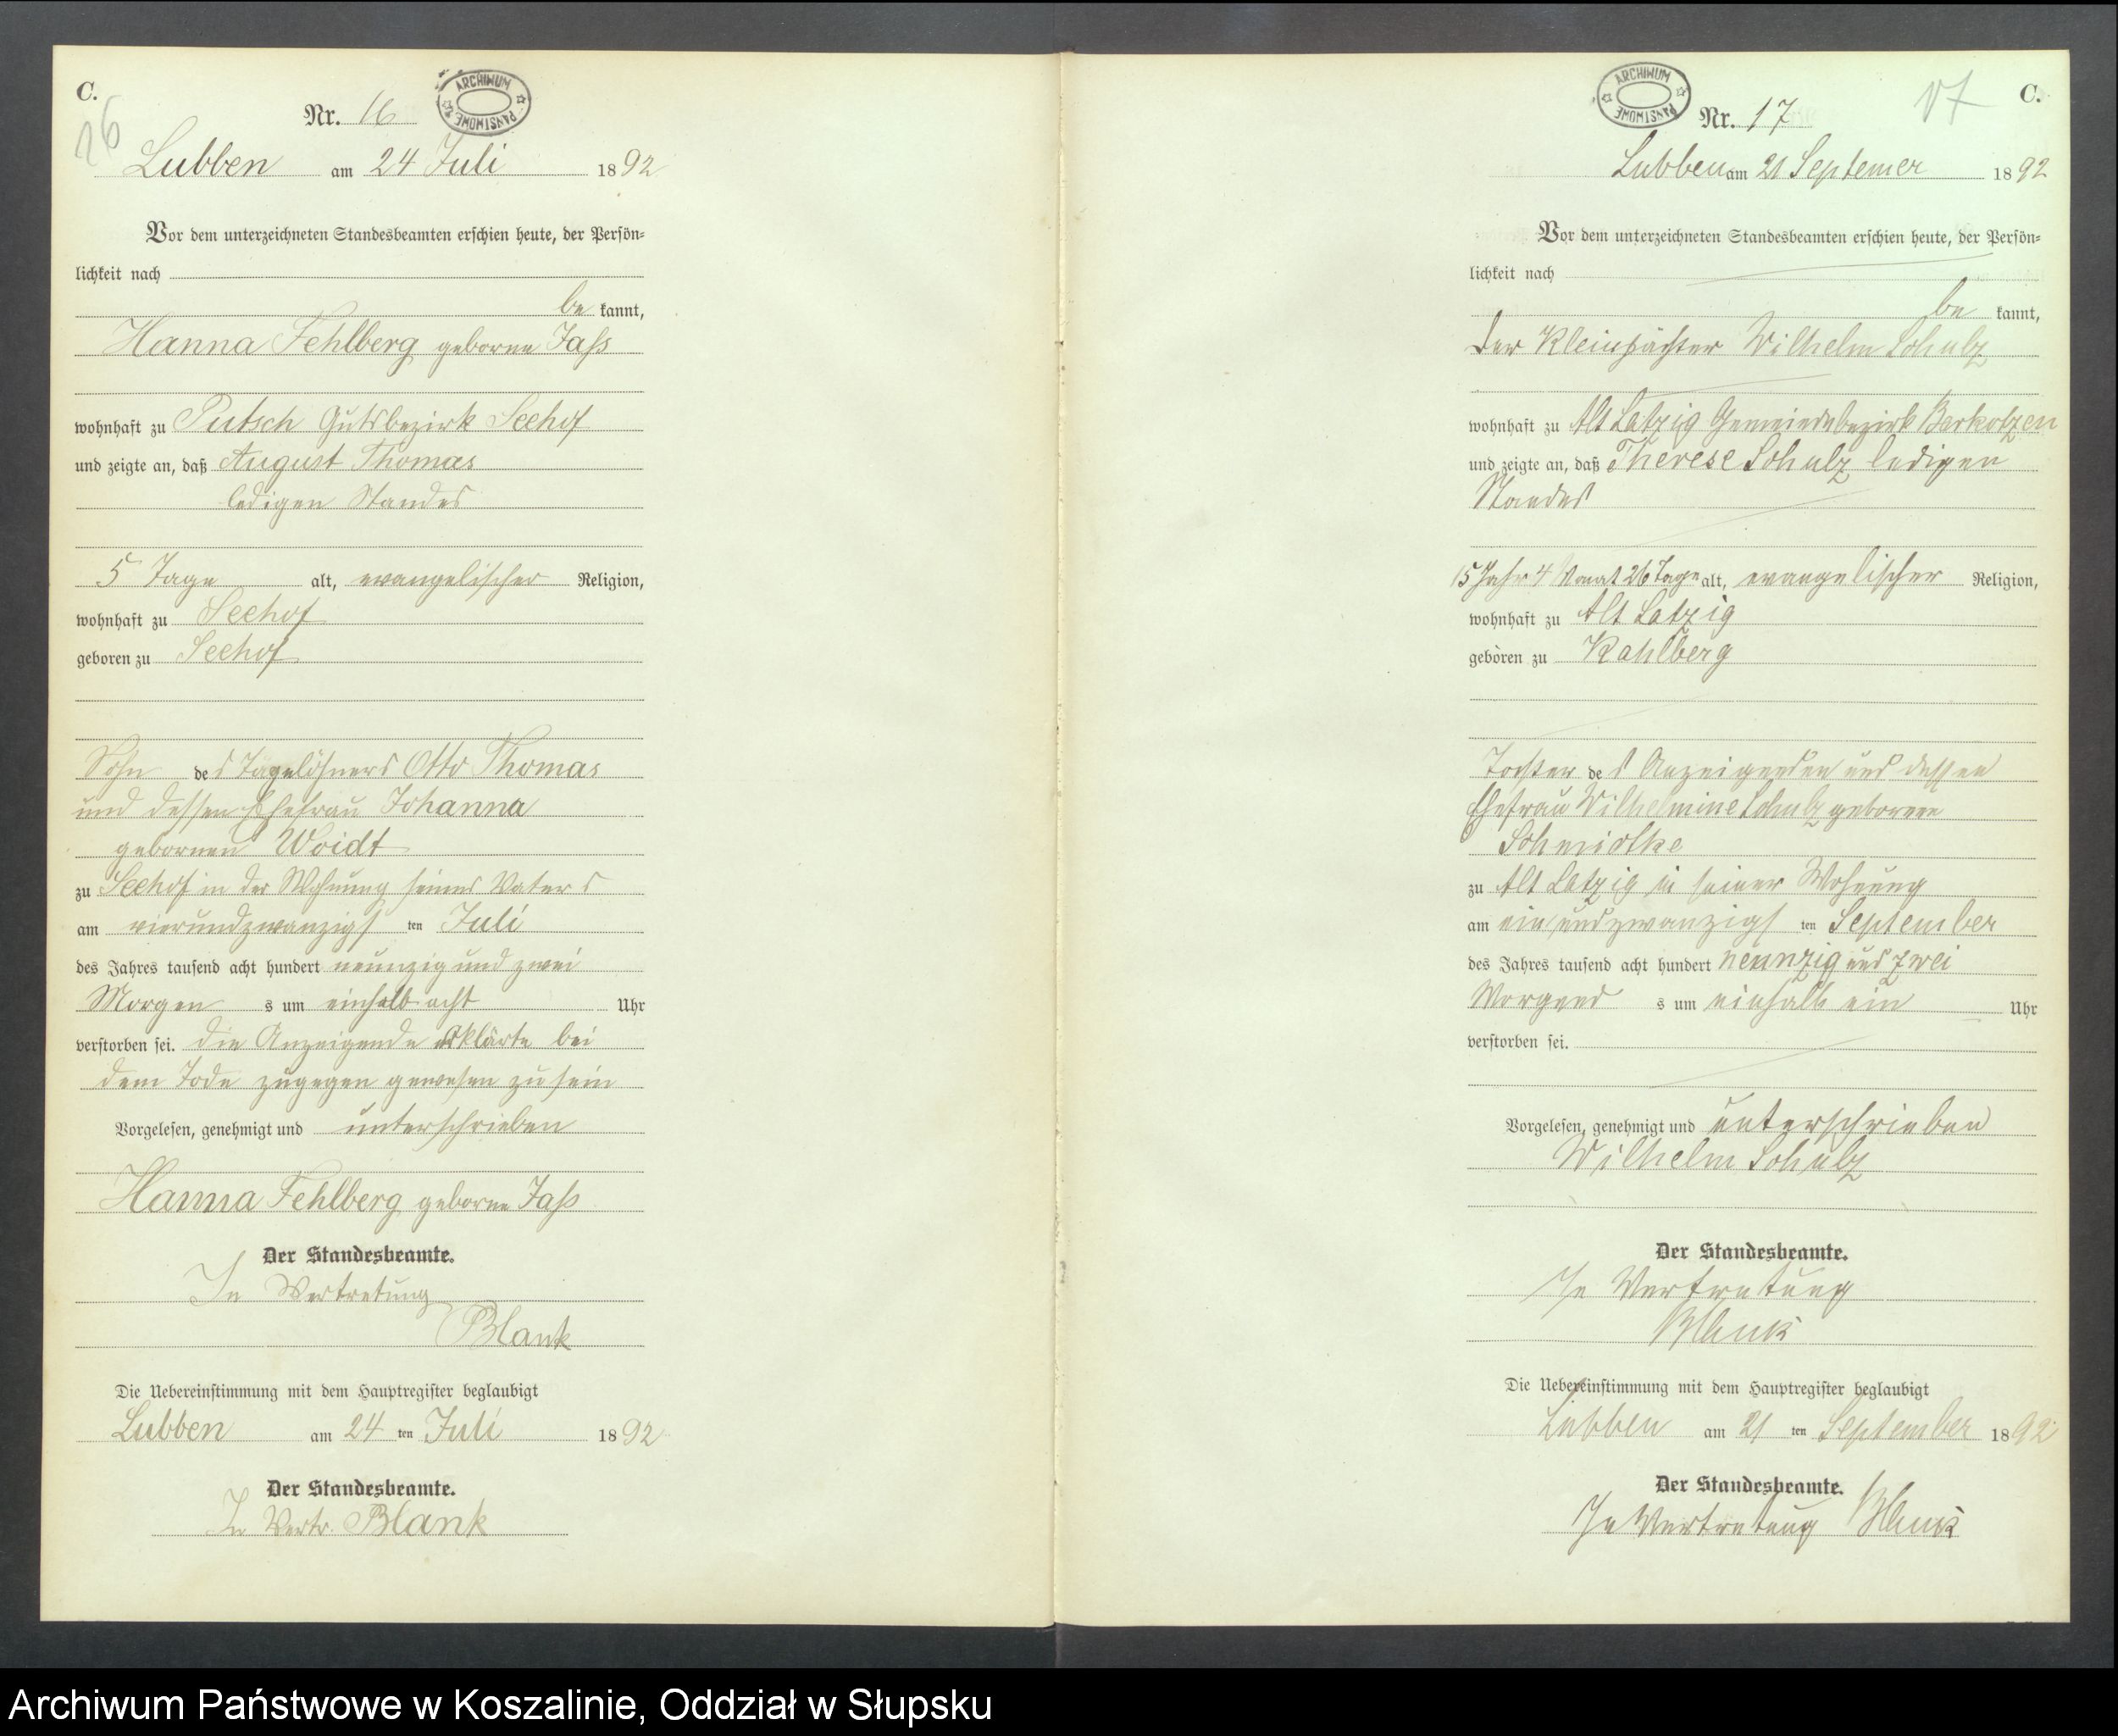 C.
16
Nr. 16
ARCHIWUM PAŃSTWOWE
Lubben am 24 Juli 1892
Vor dem unterzeichneten Standesbeamten erschien heute, der Persön-
lichkeit nach
be kannt,
Hanna Fehlberg geborne Jaß
wohnhaft zu Putsch Gutsbezirk Seehof
und zeigte an, daß August Thomas
ledigen Standes
5 Tage alt, evangelischer Religion,
wohnhaft zu Seehof
geboren zu Seehof
Sohn des Tagelöhners Otto Thomas
und dessen Ehefrau Johanna
gebornen Woidt
zu Seehof in der Wohnung seines Vaters
am vierundzwanzigs ten Juli
des Jahres tausend acht hundert neunzig und zwei
Morgen s um einhalb acht Uhr
verstorben sei. die Anzeigende erklärte bei
dem Tode zugegen gewesen zu sein
Vorgelesen, genehmigt und unterschrieben
Hanna Fehlberg geborne Jaß
Der Standesbeamte.
In Vertretung
Blank
Die Uebereinstimmung mit dem Hauptregister beglaubigt
Lubben am 24 ten Juli 1892
Der Standesbeamte.
In Vertr. Blank
ARCHIWUM PAŃSTWOWE
17
C.
Nr. 17
Lubben am 21 Septemer 1892
Vor dem unterzeichneten Standesbeamten erschien heute, der Persön-
lichkeit nach
be kannt,
der Kleinpächter Wilhelm Schulz
wohnhaft zu Alt Latzig Gemeindebezirk Barkotzen
und zeigte an, daß Therese Schulz ledigen
Standes
15 Jahr 4 Monat 26 Tage alt, evangelischer Religion,
wohnhaft zu Alt Latzig
geboren zu Kahlberg
Tochter des Anzeigenden und dessen
Ehefrau Wilhelmine Schulz geborene
Schmidtke
zu Alt Latzig in seiner Wohnung
am einundzwanzigs ten September
des Jahres tausend acht hundert neunzig und zwei
Morgend s um einhalb ein Uhr
verstorben sei.
Vorgelesen, genehmigt und unterschrieben
Wilhelm Schulz
Der Standesbeamte.
In Vertretung
Blank
Die Uebereinstimmung mit dem Hauptregister beglaubigt
Lubben am 21 ten September 1892
Der Standesbeamte.
In Vertretung Blank
Archiwum Państwowe w Koszalinie, Oddział w Słupsku